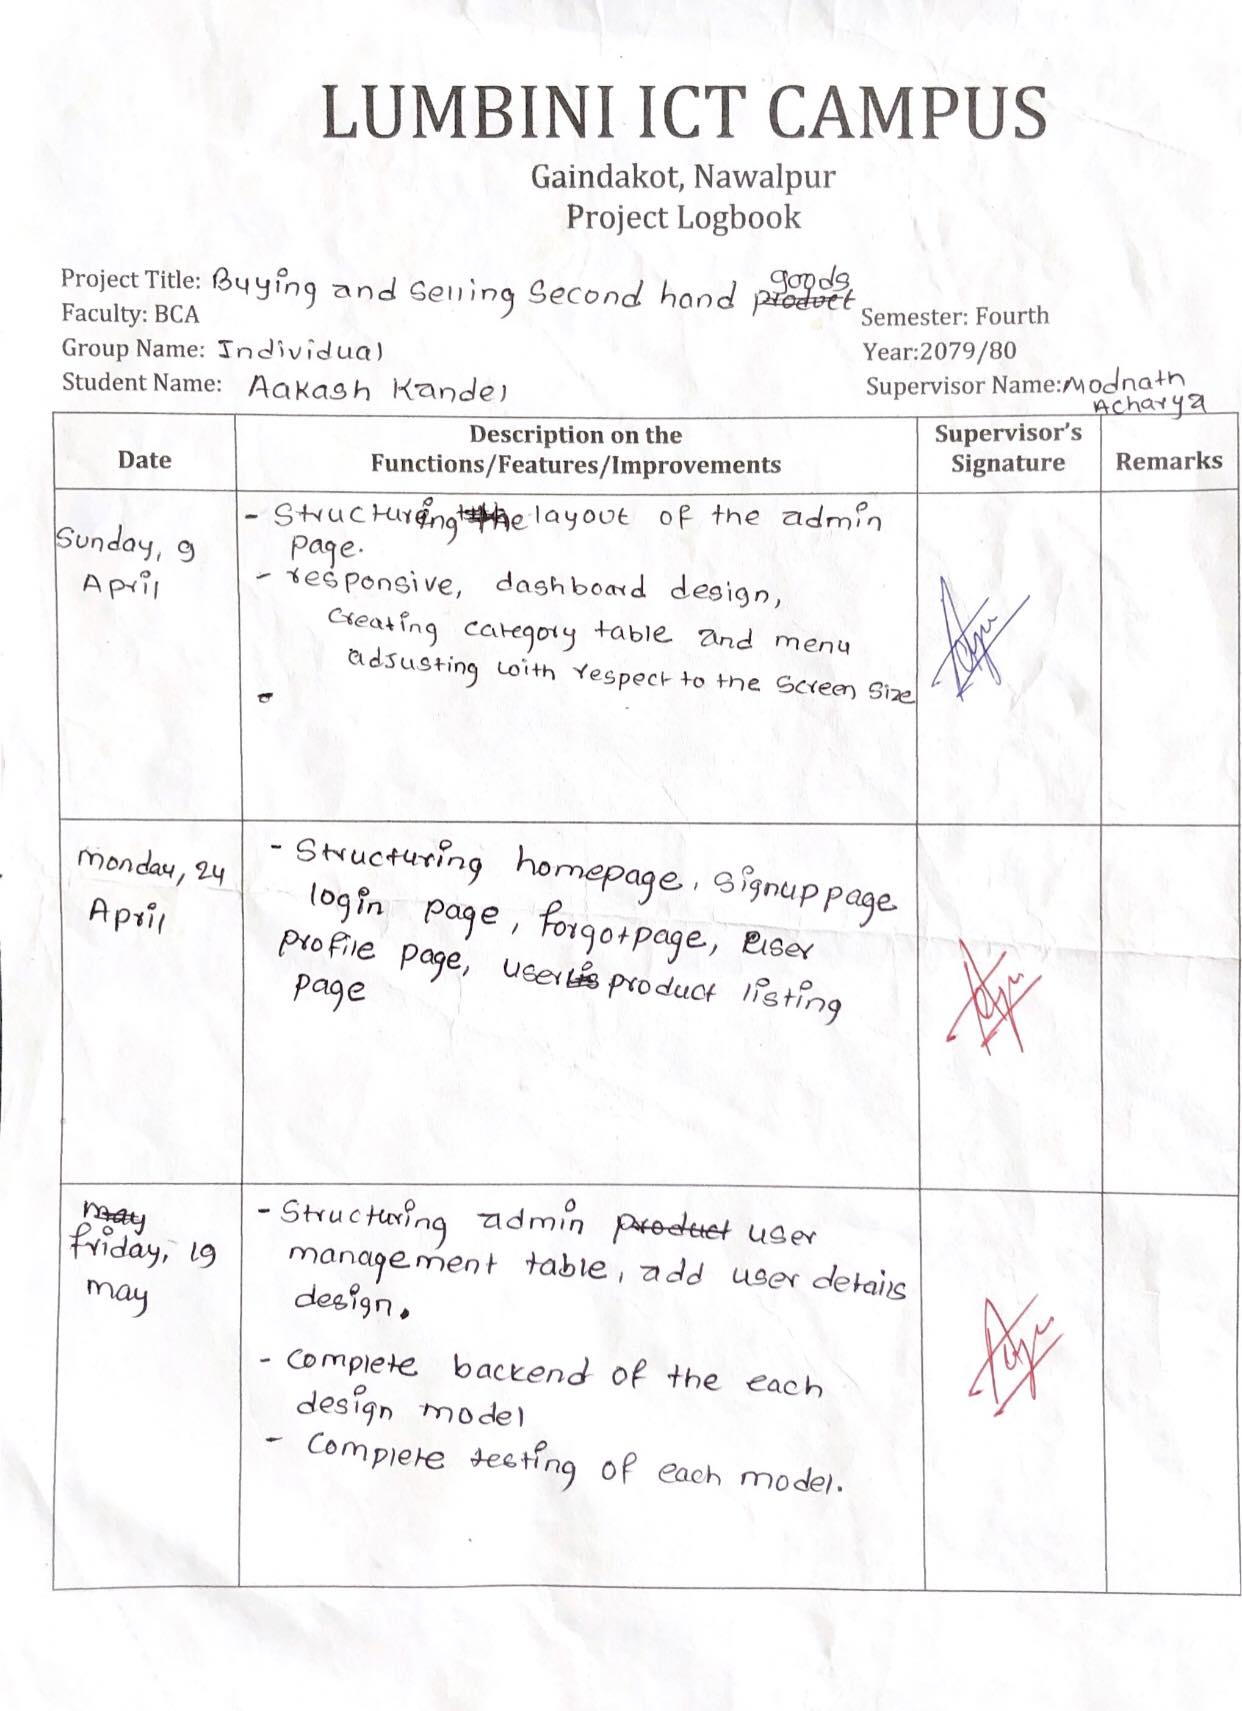 LUMBINI ICT CAMPUS
Gaindakot, Nawalpur
Project Logbook
Project Title: Buying and selling Second hand product goods
Faculty: BCA
Semester: Fourth
Group Name: Individual
Year:2079/80
Student Name: Aakash Kandel
Supervisor Name: Modnath
Acharya
Date
Description on the
Functions/Features/Improvements
Supervisor's
Signature
Remarks
Sunday, 9
April
- Structuring the layout of the admin
page.
- responsive, dashboard design,
Creating category table and menu
adjusting with respect to the Screen Size
-
monday, 24
April
- Structuring homepage, signup page
login page, forgot page, user
profile page, user product listing
page
may
friday, 19
may
- Structuring admin product user
management table, add user details
design.
- Complete backend of the each
design model
- Complete testing of each model.